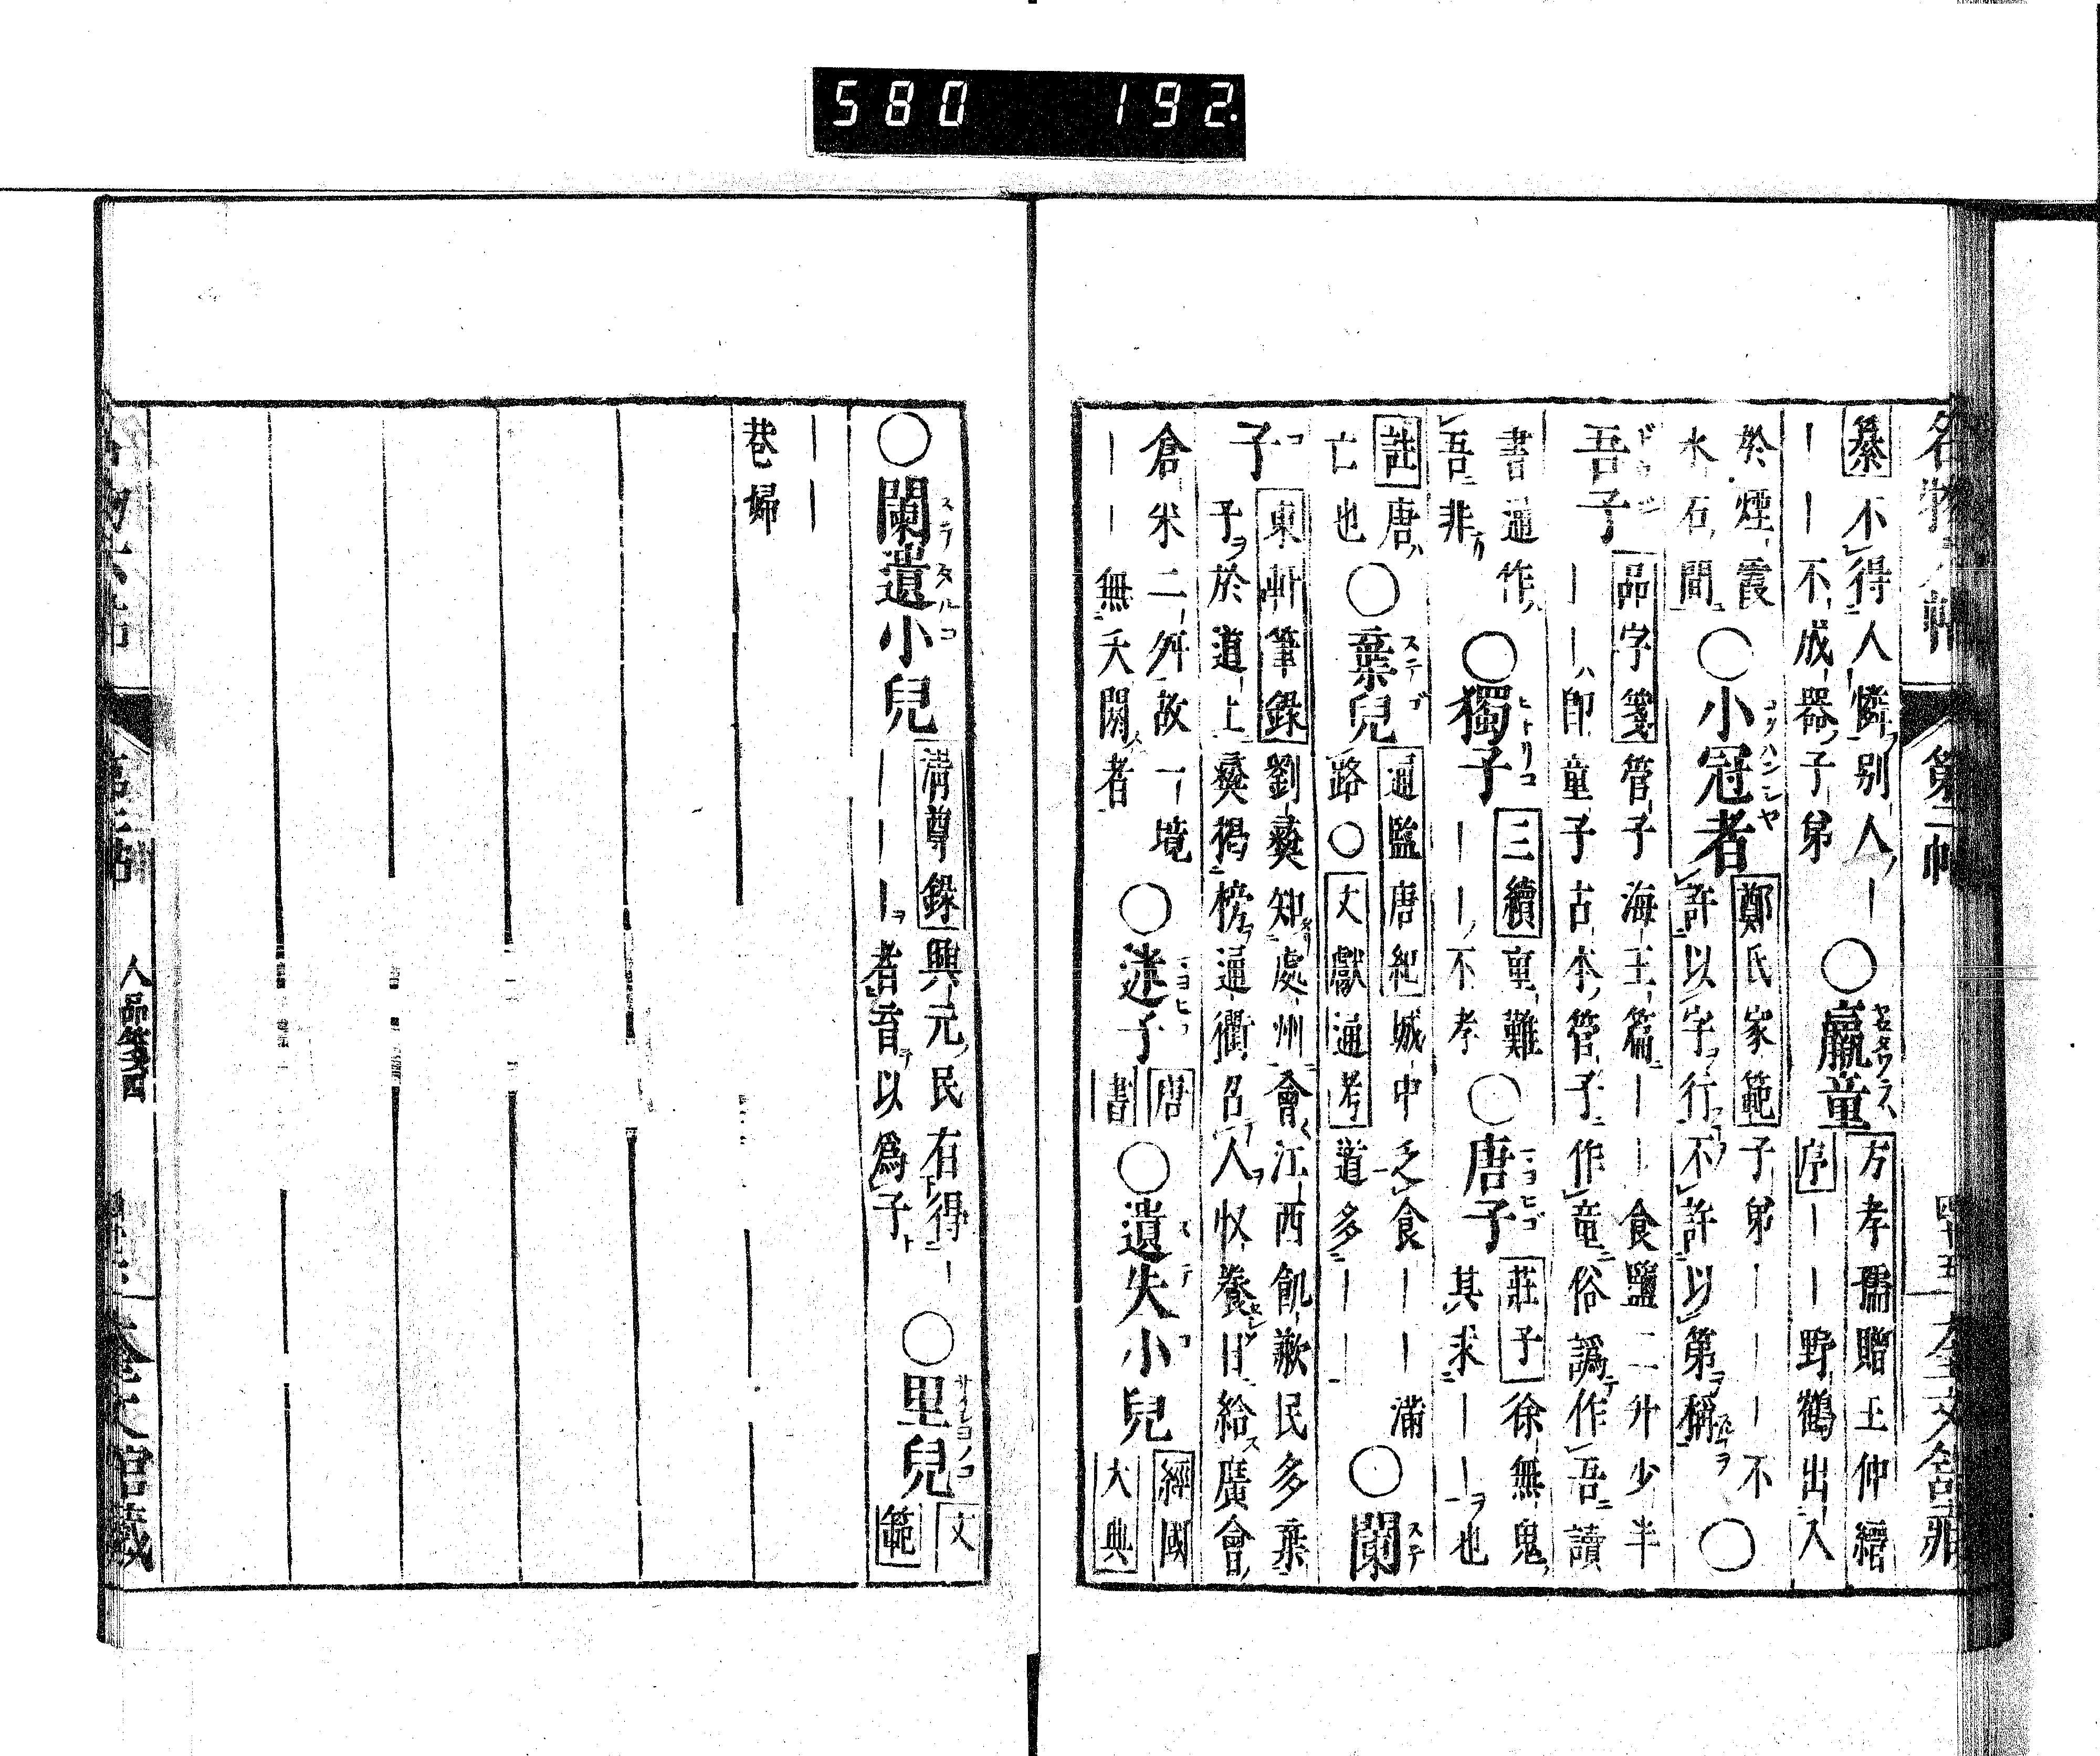 580 192.
名物六帖 第二帖
纂 不得人憐別人ー
ーー不成器子弟 ○羸童 方孝孺贈王仲縉
序ーー野鶴出入
於煙霞
水石間 ○小冠者 鄭氏家範子弟ーーー不
許以字行不許以第稱 ○
吾子 品字箋管子海王篇ーー食鹽二升少半
ーー即童子古本管子作竜俗譌作吾讀
書通作
吾非 ○獨子 三續童難
ーー不孝 ○唐子 莊子徐無鬼
其求ーー也
註唐
亡也 ○棄兒 通鑑唐紀城中乏食ーー滿
路○文獻通考道多ーー ○闌
子 東軒筆錄劉彝知處州會江西飢歉民多棄
子於道上彝揭榜通衢召人收養日給廣會
倉米二升故一境
ーー無夭閼者 ○迷子 唐
書 ○遺失小兒 經國
大典
○闌遺小兒 清尊錄興元民有得ー
ーーー者育以爲子 ○里兒 文
範
ーー
巷婦
人品箋四
奎文館藏